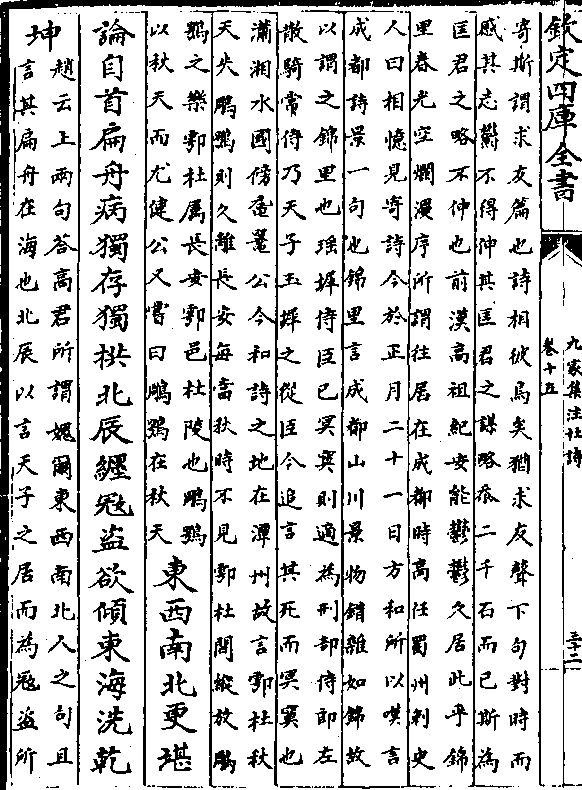 欽定四庫全書
九家集注杜詩
卷十五
三十二
寄斯謂求友篇也詩相彼鳥矣猶求友聲下句對時而
感其志鬱不得伸其匡君之謀略忝二千石而已斯為
匡君之略不伸也前漢高祖紀安能鬱鬱久居此乎錦
里春光空爛漫序所謂往居在成都時高任蜀州刺史
人日相憶見寄詩今於正月二十一日方和所以嘆言
成都詩景一句也錦里言成都山川景物錯雜如錦故
以謂之錦里也瑶墀侍臣已冥寞則適為刑部侍郎左
散騎常侍乃天子玉墀之從臣今追言其死而冥寞也
瀟湘水國傍黿鼉公今和詩之地在潭州故言鄠杜秋
天失鵰鶚則久離長安每當秋時不見鄠杜間縱放鵰
鶚之樂鄠杜属長安鄠邑杜陵也鵰鶚
以秋天而尤健公又嘗曰鵰鶚在秋天
東西南北更堪
論白首扁舟病獨存獨拱北辰纒冦盗欲傾東海洗乾
坤
趙云上兩句答高君所謂媿爾東西南北人之句且
言其扁舟在海也北辰以言天子之居而為冦盗所